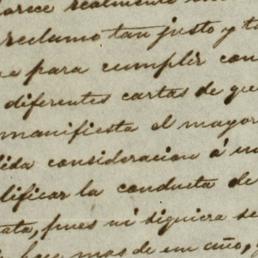 arece realmente
reclamo tan justo y t
e para cumplir con
diferentes cartas de que
manifiesta el mayor
ida consideracion á
lificar la conducta de
ata, pues ni siquiera se
que mas de un año,